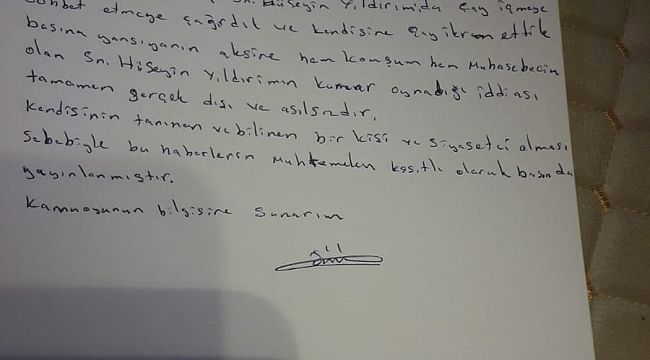 Sn. Hüseyin Yıldırımıda çay içmeye
sohbet etmeye çağırdıl ve kendisine çay ikram ettik
basına yansıyanın aksine hem komşum hem Muhasebecim
olan Sn. Hüseyin Yıldırımın kumar oynadığı iddiası
tamamen gerçek dışı ve asılsızdır.
Kendisinin tanınan ve bilinen bir kişi ve siyasetçi olması
Sebebiyle bu haberlerin Muhtemelen kasıtlı olarak basında
yayınlanmıştır.
Kamuoyunun bilgisine sunarım